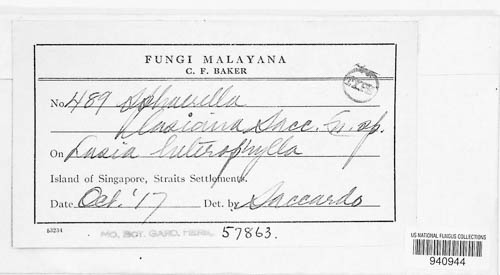 FUNGI MALAYANA
C. F. BAKER
No. 489 Sphaerella
Lasiana Sacc. n. sp.
On Lasia heterophylla
Island of Singapore, Straits Settlements.
Date Oct. '17 Det. by Saccardo
53234
MO. BOT. GARD. HERB. 57863.
US NATIONAL FUNGUS COLLECTIONS
940944